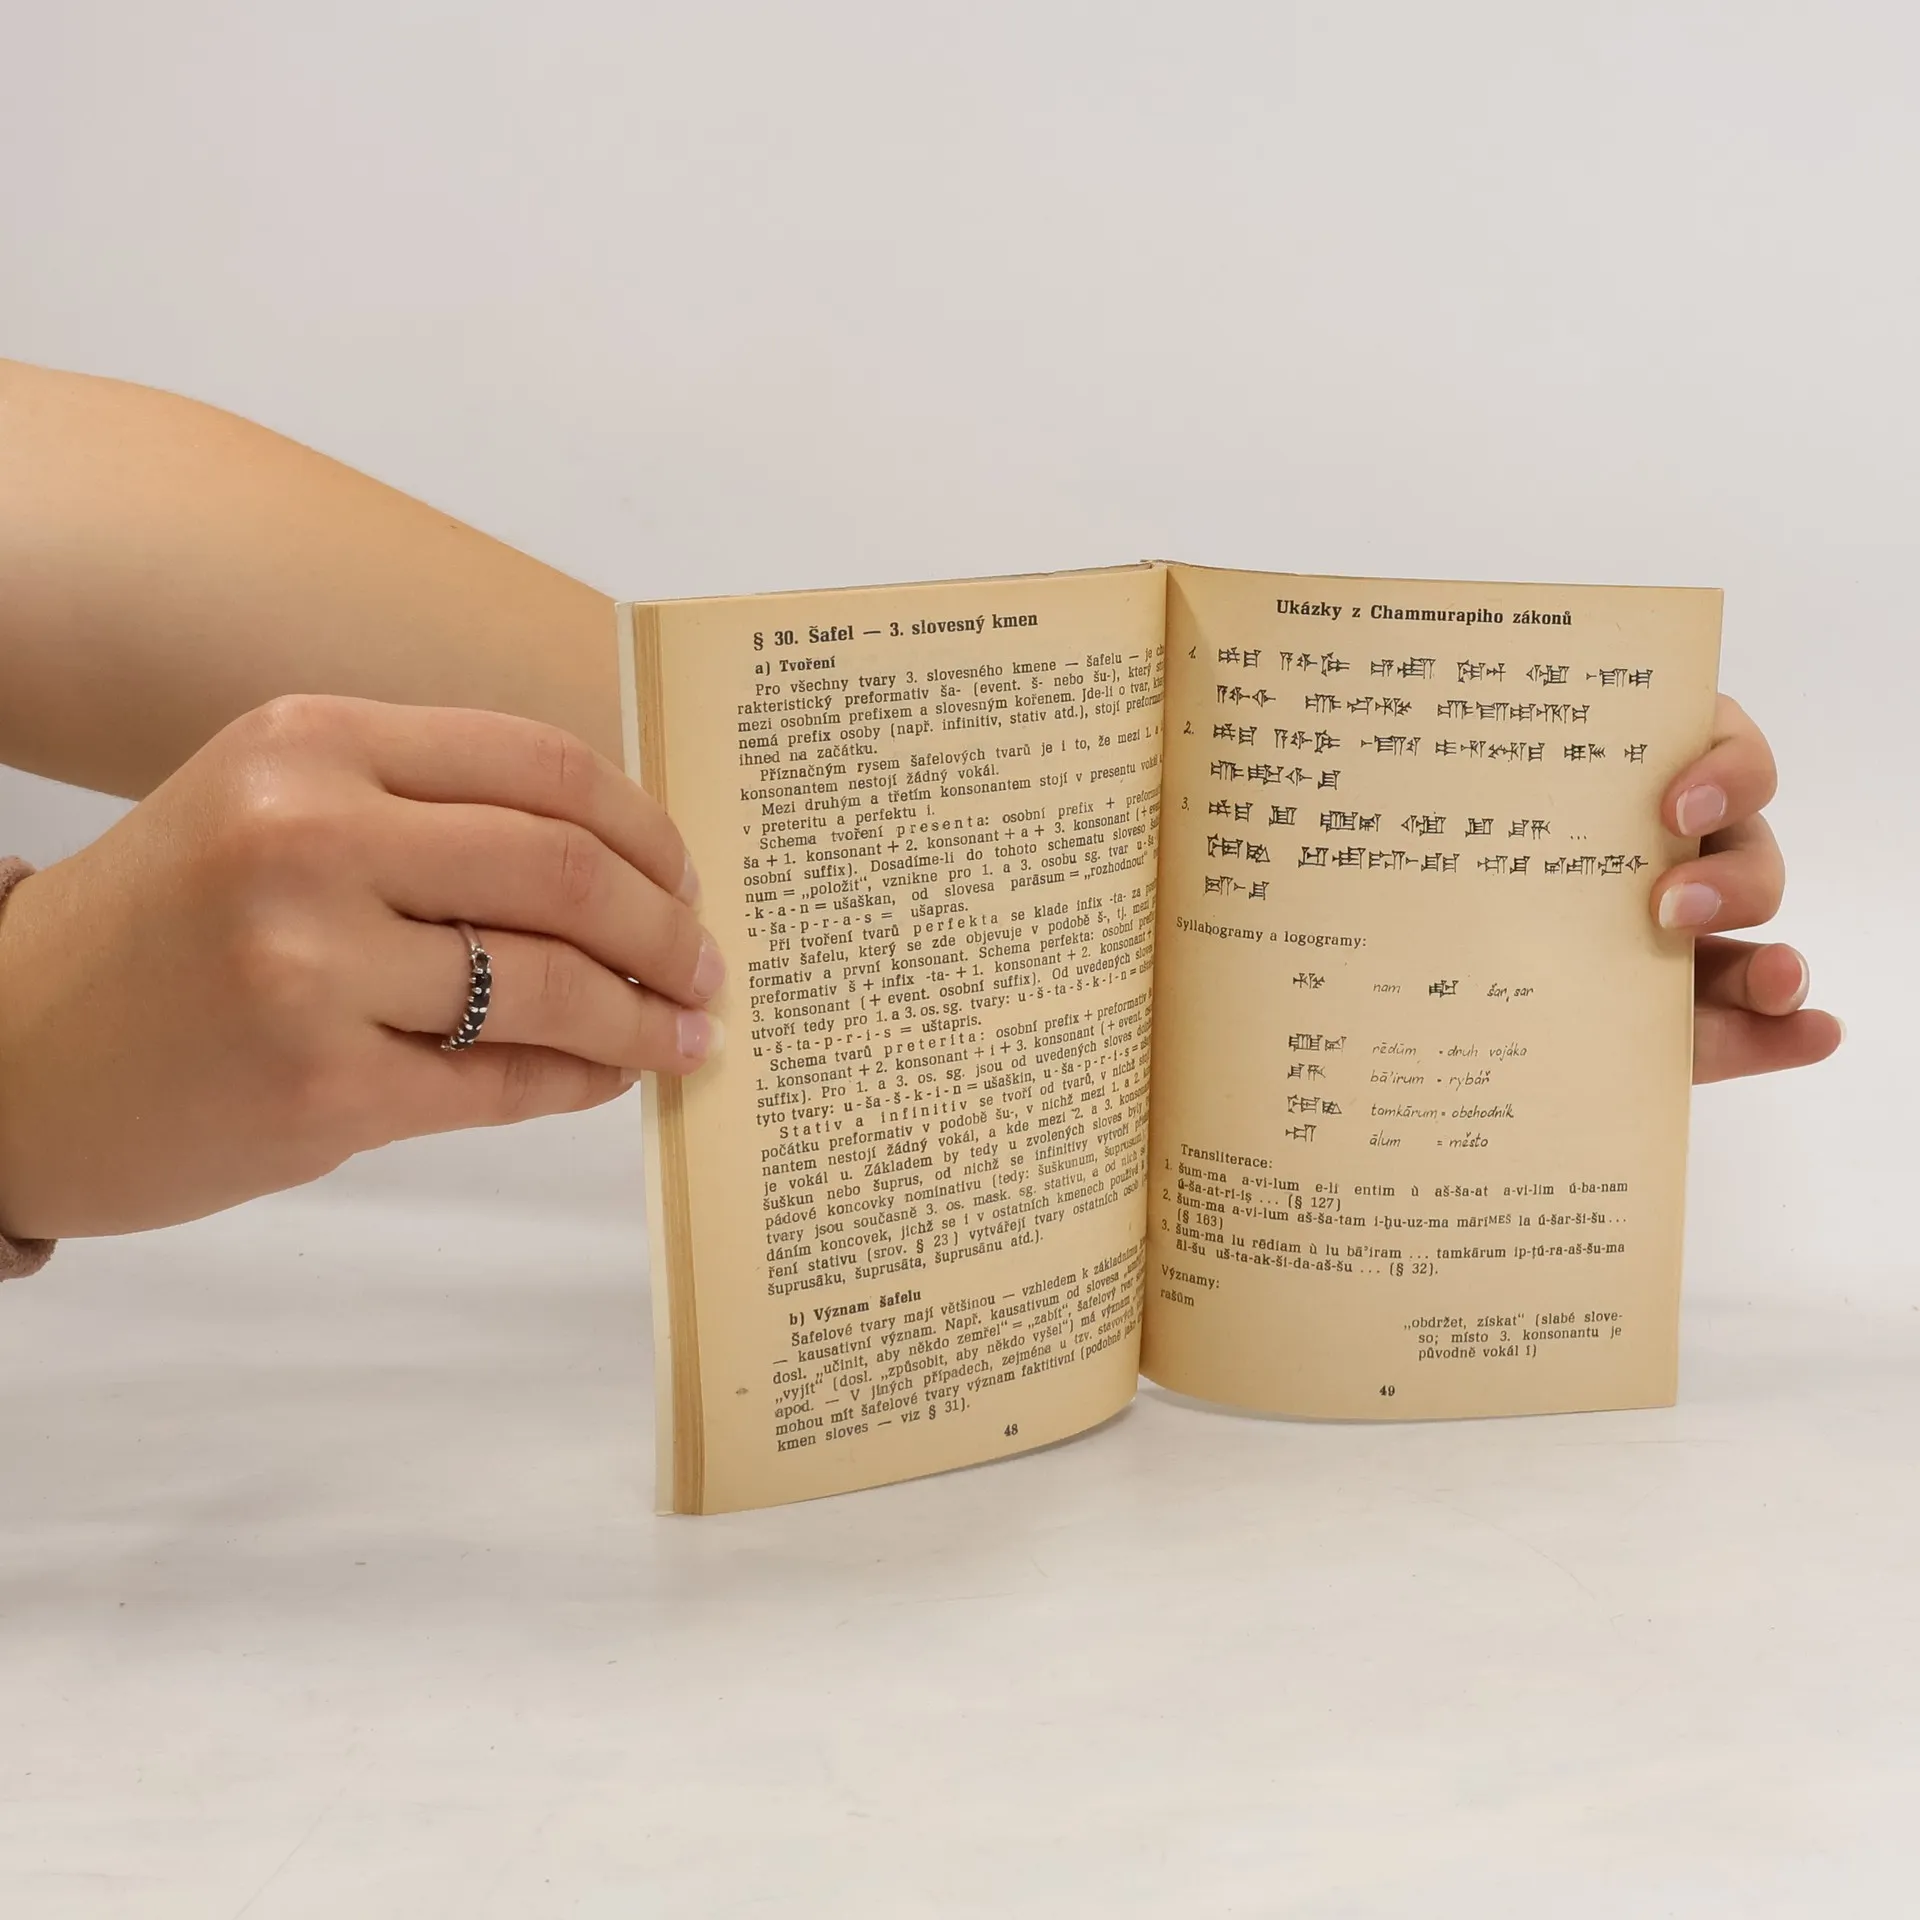 § 30. Šafel — 3. slovesný kmen
a) Tvoření
Pro všechny tvary 3. slovesného kmene — šafelu — je
rakteristický preformativ ša- (event. š- nebo šu-), který
mezi osobním prefixem a slovesným kořenem. Jde-li o tvar,
nemá prefix osoby (např. infinitiv, stativ atd.), stojí
ihned na začátku.
Příznačným rysem šafelových tvarů je i to, že mezi 1. a
konsonantem nestojí žádný vokál.
Mezi druhým a třetím konsonantem stojí v presentu vokál
v preteritu a perfektu i.
Schema tvoření presenta: osobní prefix +
ša + 1. konsonant + 2. konsonant + a + 3. konsonant (+
osobní suffix). Dosadíme-li do tohoto schematu sloveso
num = „položit“, vznikne pro 1. a 3. osobu sg. tvar u-ša
-k-a-n = ušaškan, od slovesa parāsum = „rozhodnout“
u-ša-p-r-a-s = ušapras.
Při tvoření tvarů perfekta se klade infix -ta- za
mativ šafelu, který se zde objevuje v podobě š-, tj. mezi
formativ a první konsonant. Schema perfekta: osobní
preformativ š + infix -ta- + 1. konsonant + 2. konsonant +
3. konsonant (+ event. osobní suffix). Od uvedených
utvoří tedy pro 1. a 3. os. sg. tvary: u-š-ta-š-k-i-n =
u-š-ta-p-r-i-s = uštapris.
Schema tvarů preterita: osobní prefix + preformativ
1. konsonant + 2. konsonant + i + 3. konsonant (+ event.
suffix). Pro 1. a 3. os. sg. jsou od uvedených sloves
tyto tvary: u-ša-š-k-i-n = ušaškin, u-ša-p-r-i-s =
Stativ a infinitiv se tvoří od tvarů, v nichž
počátku preformativ v podobě šu-, v nichž mezi 1. a 2.
nantem nestojí žádný vokál, a kde mezi 2. a 3.
je vokál u. Základem by tedy u zvolených sloves byly
šuškun nebo šuprus, od nichž se infinitivy vytvoří
pádové koncovky nominativu (tedy: šuškunum, šuprusum)
tvary jsou současně 3. os. mask. sg. stativu, a od nich se
dáním koncovek, jichž se i v ostatních kmenech používá k
ření stativu (srov. § 23) vytvářejí tvary ostatních osob
šuprusāku, šuprusāta, šuprusānu atd.).
b) Význam šafelu
Šafelové tvary mají většinou — vzhledem k základnímu
— kausativní význam. Např. kausativum od slovesa
dosl. „učinit, aby někdo zemřel“ = „zabít“, šafelový tvar
„vyjít“ (dosl. „způsobit, aby někdo vyšel“) má význam
apod. — V jiných případech, zejména u tzv. stavových
mohou mít šafelové tvary význam faktitivní (podobně jako
kmen sloves — viz § 31).
48
Ukázky z Chammurapiho zákonů
1.
2.
3.
...
Syllabogramy a logogramy:
nam šar, sar
rēdūm = druh vojáka
bā'irum = rybář
tamkārum = obchodník
ālum = město
Transliterace:
1. šum-ma a-vi-lum e-li entim ù aš-ša-at a-vi-lim ú-ba-nam
ú-ša-at-ri-iṣ ... (§ 127)
2. šum-ma a-vi-lum aš-ša-tam i-ḫu-uz-ma māríMEŠ la ú-šar-ši-šu...
(§ 163)
3. šum-ma lu rēdiam ù lu bā'iram ... tamkārum ip-ṭú-ra-aš-šu-ma
āl-šu uš-ta-ak-ši-da-aš-šu ... (§ 32).
Významy:
rašūm
„obdržet, získat“ (slabé slove-
so; místo 3. konsonantu je
původně vokál ī)
49